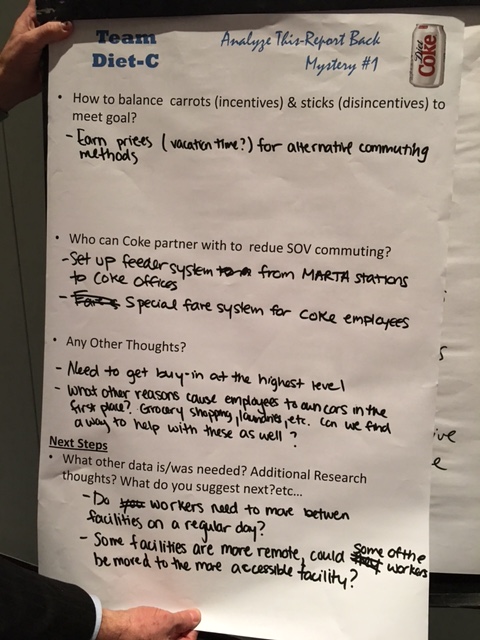 Team
Diet-C
Analyze This-Report Back
Mystery #1
Diet
Coke
• How to balance carrots (incentives) & sticks (disincentives) to
meet goal?
- Earn prizes (vacation time?) for alternative commuting
methods
• Who can Coke partner with to redue SOV commuting?
- Set up feeder system from MARTA stations
to Coke offices
- Special fare system for Coke employees
• Any Other Thoughts?
- Need to get buy-in at the highest level
- What other reasons cause employees to own cars in the
first place? Grocery shopping, laundries, etc. Can we find
a way to help with these as well?
Next Steps
• What other data is/was needed? Additional Research
thoughts? What do you suggest next?etc...
- Do workers need to move betwen
facilities on a regular day?
- Some facilities are more remote, could some of the
workers
be moved to the more accessible facility?
s
ive
e